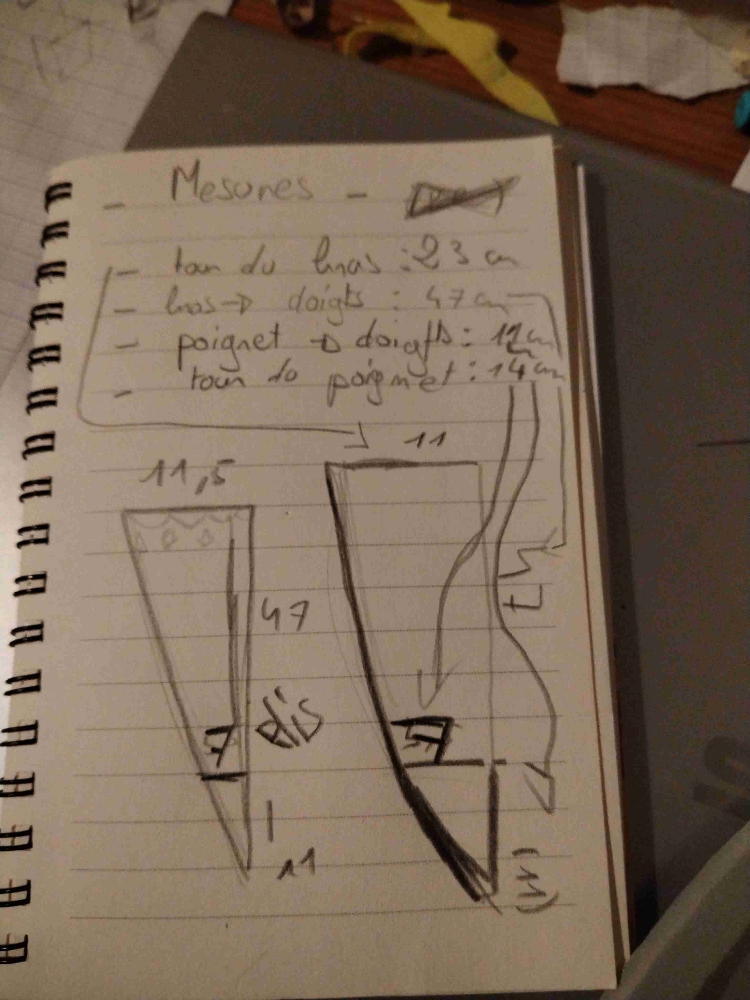 - Mesures -
- tour du bras : 23 cm
- bras → doigts : 47 cm
- poignet → doigts : 11 cm
- tour du poignet : 14 cm
11,5
11
47
47
7
7
11